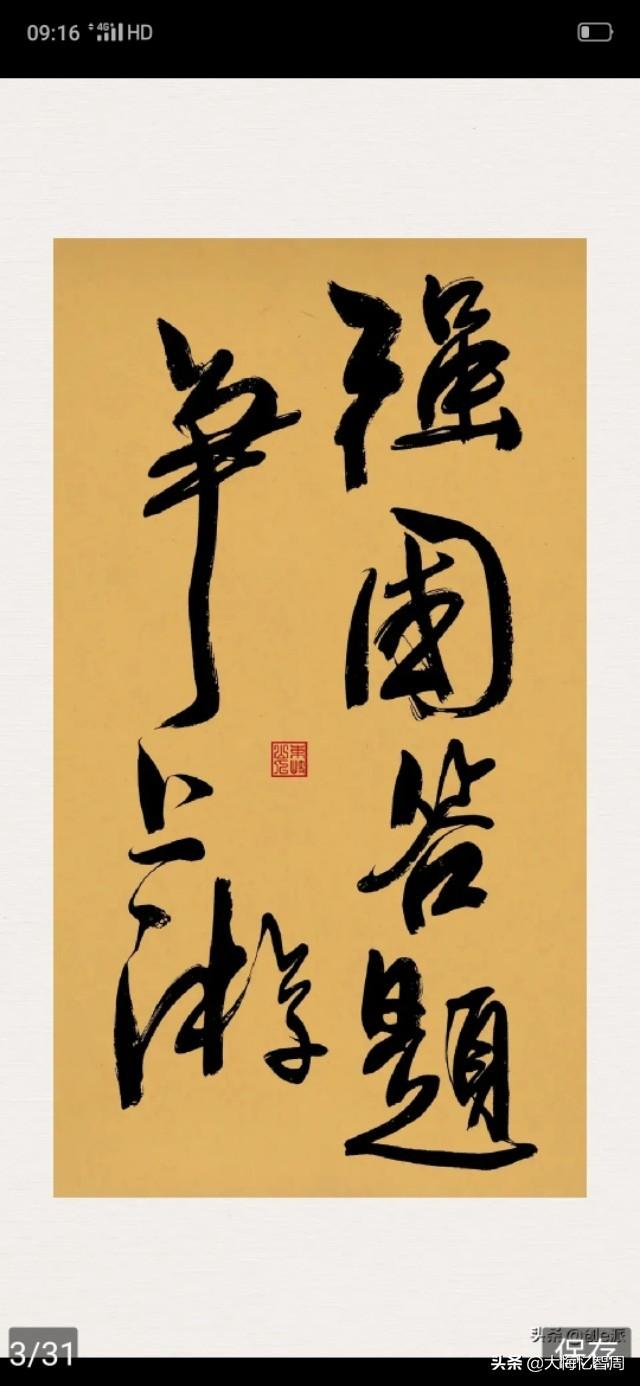 09:16 4G HD
强国答题
争上游
3/31
保存
头条 @大海忆智周